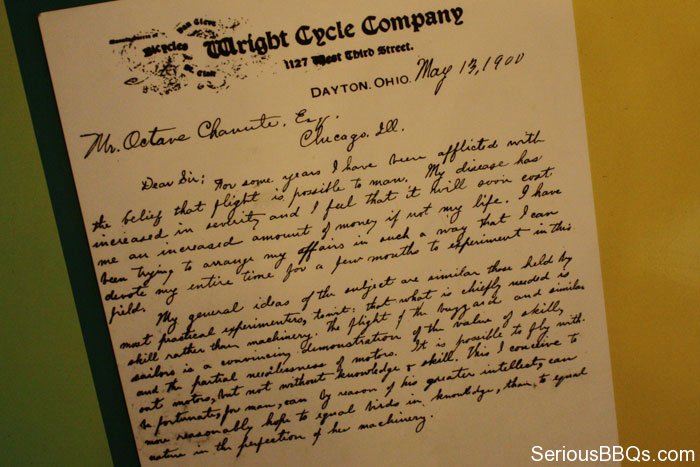 Van Cleve
Bicycles
St. Clair
Wright Cycle Company
1127 West Third Street.
DAYTON, OHIO. May 13, 1900
Mr. Octave Chanute, Esq.
Chicago, Ill.
Dear Sir; For some years I have been afflicted with
the belief that flight is possible to man. My disease has
increased in severity and I feel that it will soon cost
me an increased amount of money if not my life. I have
been trying to arrange my affairs in such a way that I can
devote my entire time for a few months to experiment in this
field.
My general ideas of the subject are similar those held by
most practical experimenters, towit: that what is chiefly needed is
skill rather than machinery. The flight of the buzzard and similar
sailors is a convincing demonstration of the value of skill,
and the partial needlessness of motors. It is possible to fly with-
out motors, but not without knowledge & skill. This I conceive to
be fortunate, for man, can by reason of his greater intellect, can
more reasonably hope to equal birds in knowledge, than to equal
nature in the perfection of her machinery.
SeriousBBQs.com